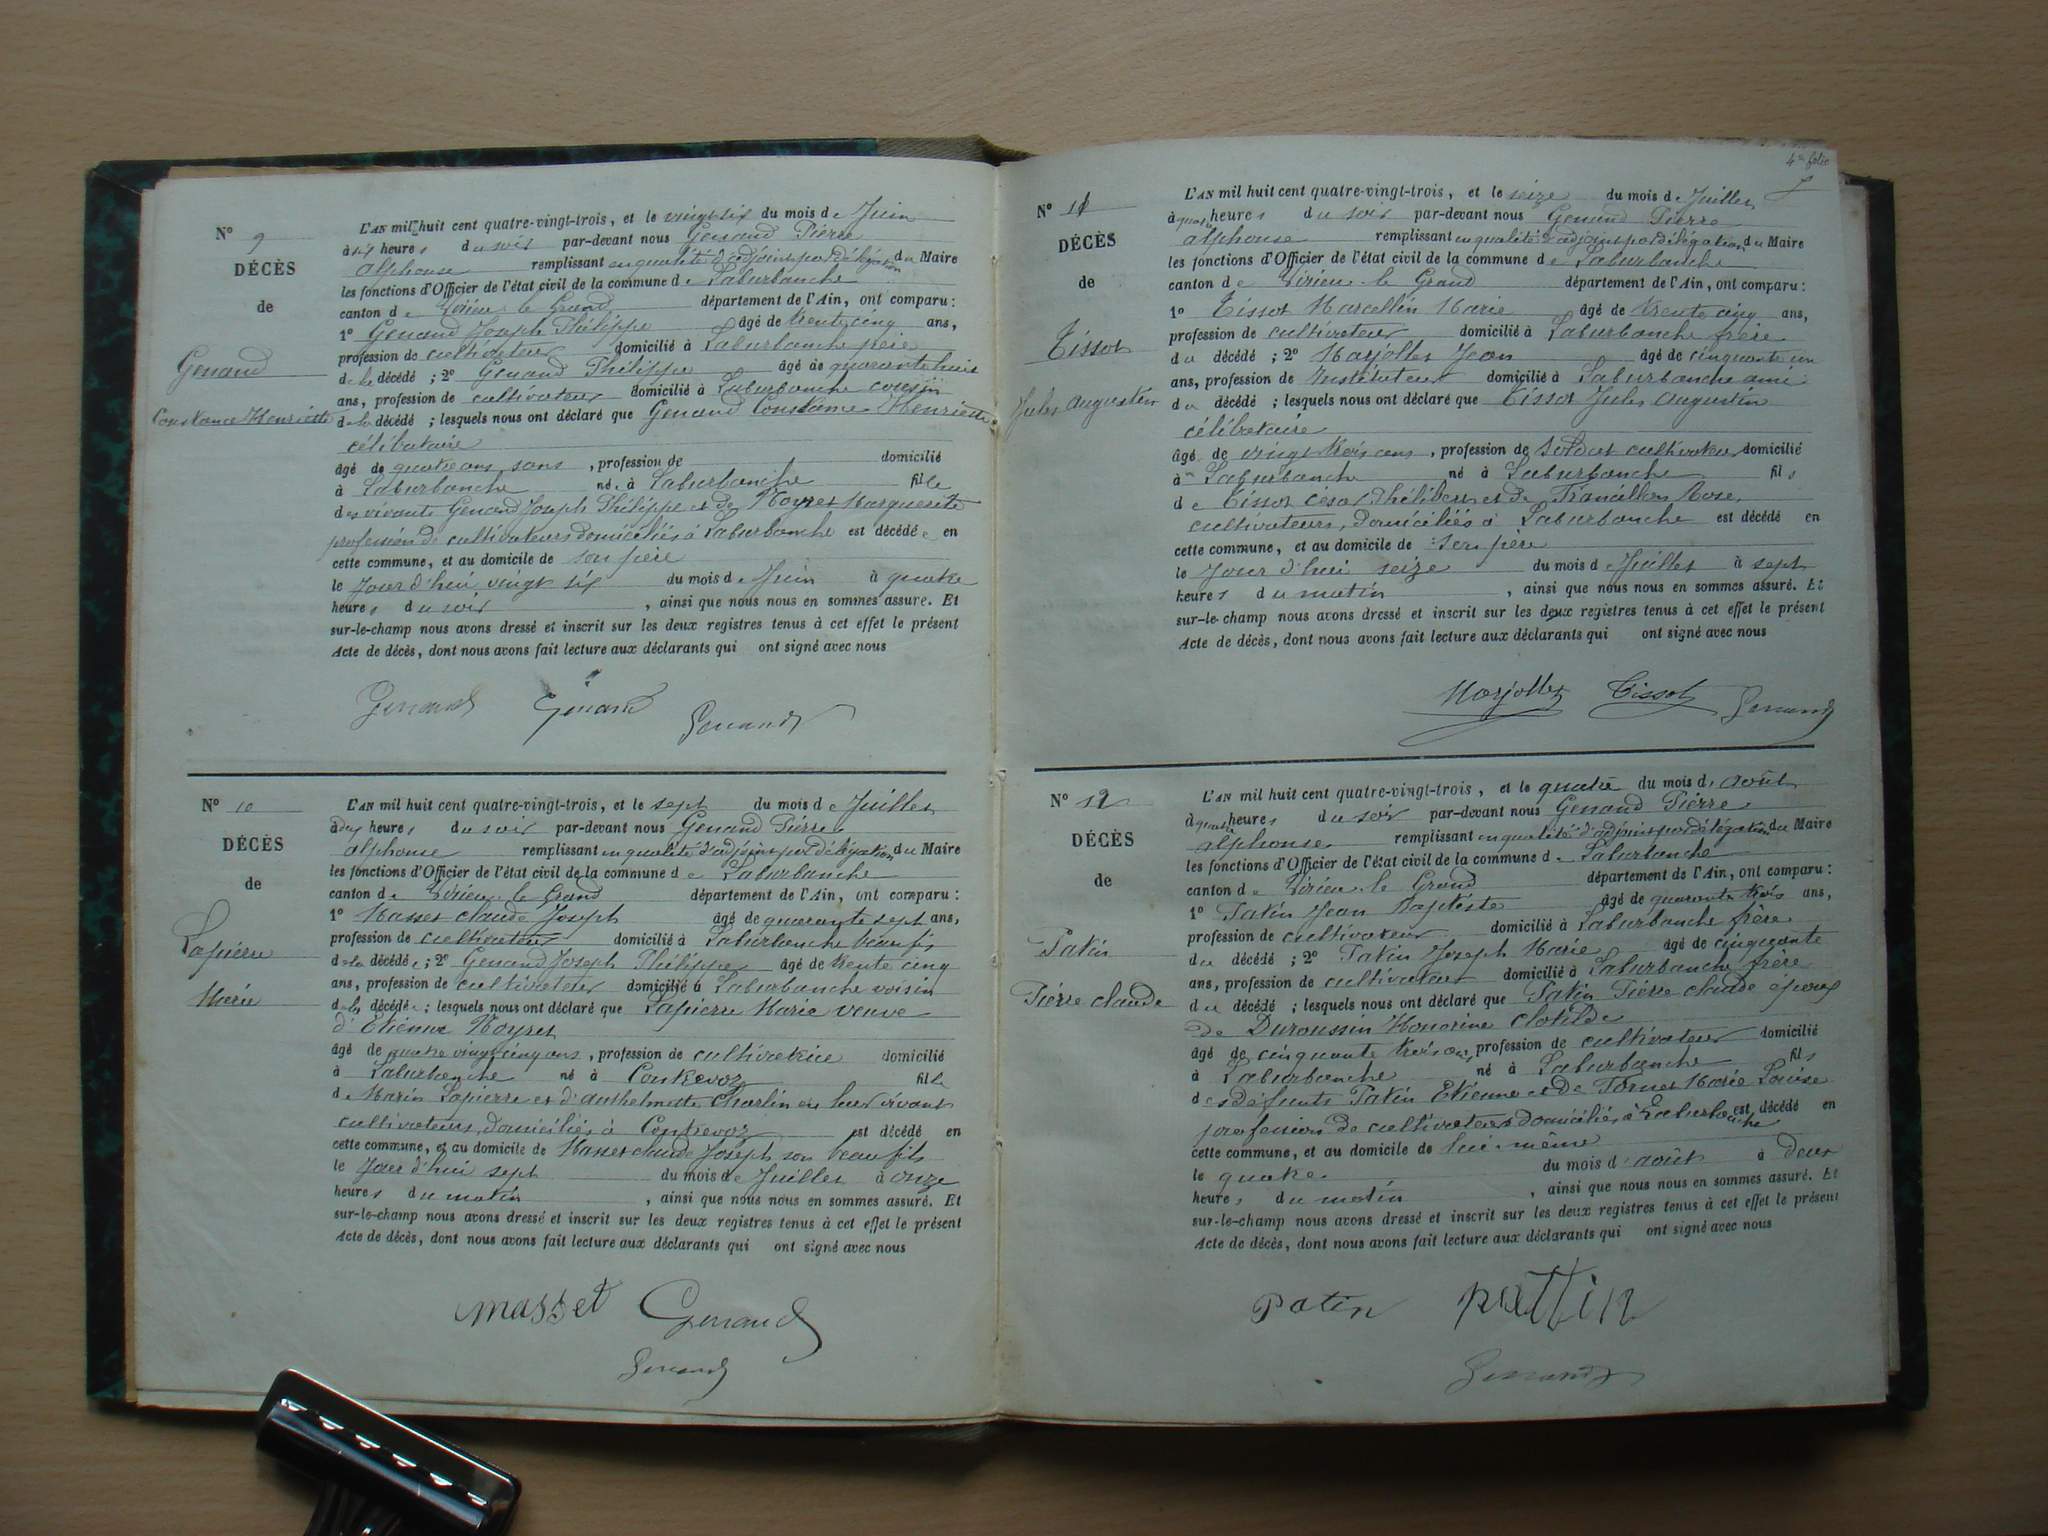 N° 9
DÉCÈS
de
Genand
Constance Henriette
L'AN mil huit cent quatre-vingt-trois, et le vingt six du mois de Juin
à six heures du soir par-devant nous Genand Pierre
alphonse remplissant en qualité d'adjoint par délégation du Maire
les fonctions d'Officier de l'état civil de la commune de Laburbanche
canton de Virieu le Grand département de l'Ain, ont comparu :
1° Genand Joseph Philippe âgé de trente cinq ans,
profession de cultivateur domicilié à Laburbanche père
de la décédé ; 2° Genand Philippe âgé de quarante huit
ans, profession de cultivateur domicilié à Laburbanche cousin
de la décédé ; lesquels nous ont déclaré que Genand Constance Henriette
célibataire
âgé de quatre ans, sans, profession de domicilié
à Laburbanche née à Laburbanche fille
des vivants Genand Joseph Philippe et de Noyret Marguerite
profession de cultivateurs domiciliés à Laburbanche est décédée en
cette commune, et au domicile de son père
le Jour d'hui vingt six du mois de Juin à quatre
heures du soir, ainsi que nous nous en sommes assuré. Et
sur-le-champ nous avons dressé et inscrit sur les deux registres tenus à cet effet le présent
Acte de décès, dont nous avons fait lecture aux déclarants qui ont signé avec nous
Genand Genand Genand
N° 10
DÉCÈS
de
Lapierre
Marie
L'AN mil huit cent quatre-vingt-trois, et le sept du mois de Juillet
à deux heures du soir par-devant nous Genand Pierre
alphonse remplissant en qualité d'adjoint par délégation du Maire
les fonctions d'Officier de l'état civil de la commune de Laburbanche
canton de Virieu le Grand département de l'Ain, ont comparu :
1° Masset claude Joseph âgé de quarante sept ans,
profession de cultivateur domicilié à Laburbanche beaufils
de la décédée ; 2° Genand Joseph Philippe âgé de trente cinq
ans, profession de cultivateur domicilié à Laburbanche voisin
de la décédée ; lesquels nous ont déclaré que Lapierre Marie veuve
d'Etienne Noyret
âgé de quatre vingt cinq ans, profession de cultivatrice domicilié
à Laburbanche né à Contrevoz fille
de Marin Lapierre et d'anthelmette Charlin en leur vivant
cultivateurs, domiciliés à Contrevoz est décédé en
cette commune, et au domicile de Masset claude Joseph son beaufils
le Jour d'hui sept du mois de Juillet à onze
heures du matin, ainsi que nous nous en sommes assuré. Et
sur-le-champ nous avons dressé et inscrit sur les deux registres tenus à cet effet le présent
Acte de décès, dont nous avons fait lecture aux déclarants qui ont signé avec nous
masset Genand
Genand
4e folio
N° 11
DÉCÈS
de
Tissot
Jules Augustin
L'AN mil huit cent quatre-vingt-trois, et le seize du mois de Juillet
à quatre heures du soir par-devant nous Genand Pierre
alphonse remplissant en qualité d'adjoint par délégation du Maire
les fonctions d'Officier de l'état civil de la commune de Laburbanche
canton de Virieu le Grand département de l'Ain, ont comparu :
1° Tissot Marcellin Marie âgé de trente cinq ans,
profession de cultivateur domicilié à Laburbanche frère
du décédé ; 2° Marjollet Jean âgé de cinquante un
ans, profession de Instituteur domicilié à Laburbanche ami
du décédé ; lesquels nous ont déclaré que Tissot Jules Augustin
célibataire
âgé de vingt trois ans, profession de soldat cultivateur domicilié
à Laburbanche né à Laburbanche fils
de Tissot César Philibert et de Francillon Rose,
cultivateurs, domiciliés à Laburbanche est décédé en
cette commune, et au domicile de son père
le Jour d'hui seize du mois de Juillet à sept
heures du matin, ainsi que nous nous en sommes assuré. Et
sur-le-champ nous avons dressé et inscrit sur les deux registres tenus à cet effet le présent
Acte de décès, dont nous avons fait lecture aux déclarants qui ont signé avec nous
Marjollet Tissot Genand
N° 12
DÉCÈS
de
Patin
Pierre claude
L'AN mil huit cent quatre-vingt-trois, et le quatre du mois d'août
à quatre heures du soir par-devant nous Genand Pierre
alphonse remplissant en qualité d'adjoint par délégation du Maire
les fonctions d'Officier de l'état civil de la commune de Laburbanche
canton de Virieu le Grand département de l'Ain, ont comparu :
1° Patin Jean Baptiste âgé de quarante trois ans,
profession de cultivateur domicilié à Laburbanche frère
du décédé ; 2° Patin Joseph Marie âgé de cinquante
ans, profession de cultivateur domicilié à Laburbanche frère
du décédé ; lesquels nous ont déclaré que Patin Pierre claude époux
de Duroussin Honorine Clotilde
âgé de cinquante trois ans, profession de cultivateur domicilié
à Laburbanche né à Laburbanche fils
des défunts Patin Etienne et de Tornet Marie Louise
profession de cultivateurs domiciliés à Laburbanche est décédé en
cette commune, et au domicile de lui-même
le quatre du mois d'août à deux
heures du matin, ainsi que nous nous en sommes assuré. Et
sur-le-champ nous avons dressé et inscrit sur les deux registres tenus à cet effet le présent
Acte de décès, dont nous avons fait lecture aux déclarants qui ont signé avec nous
Patin pattin
Genand